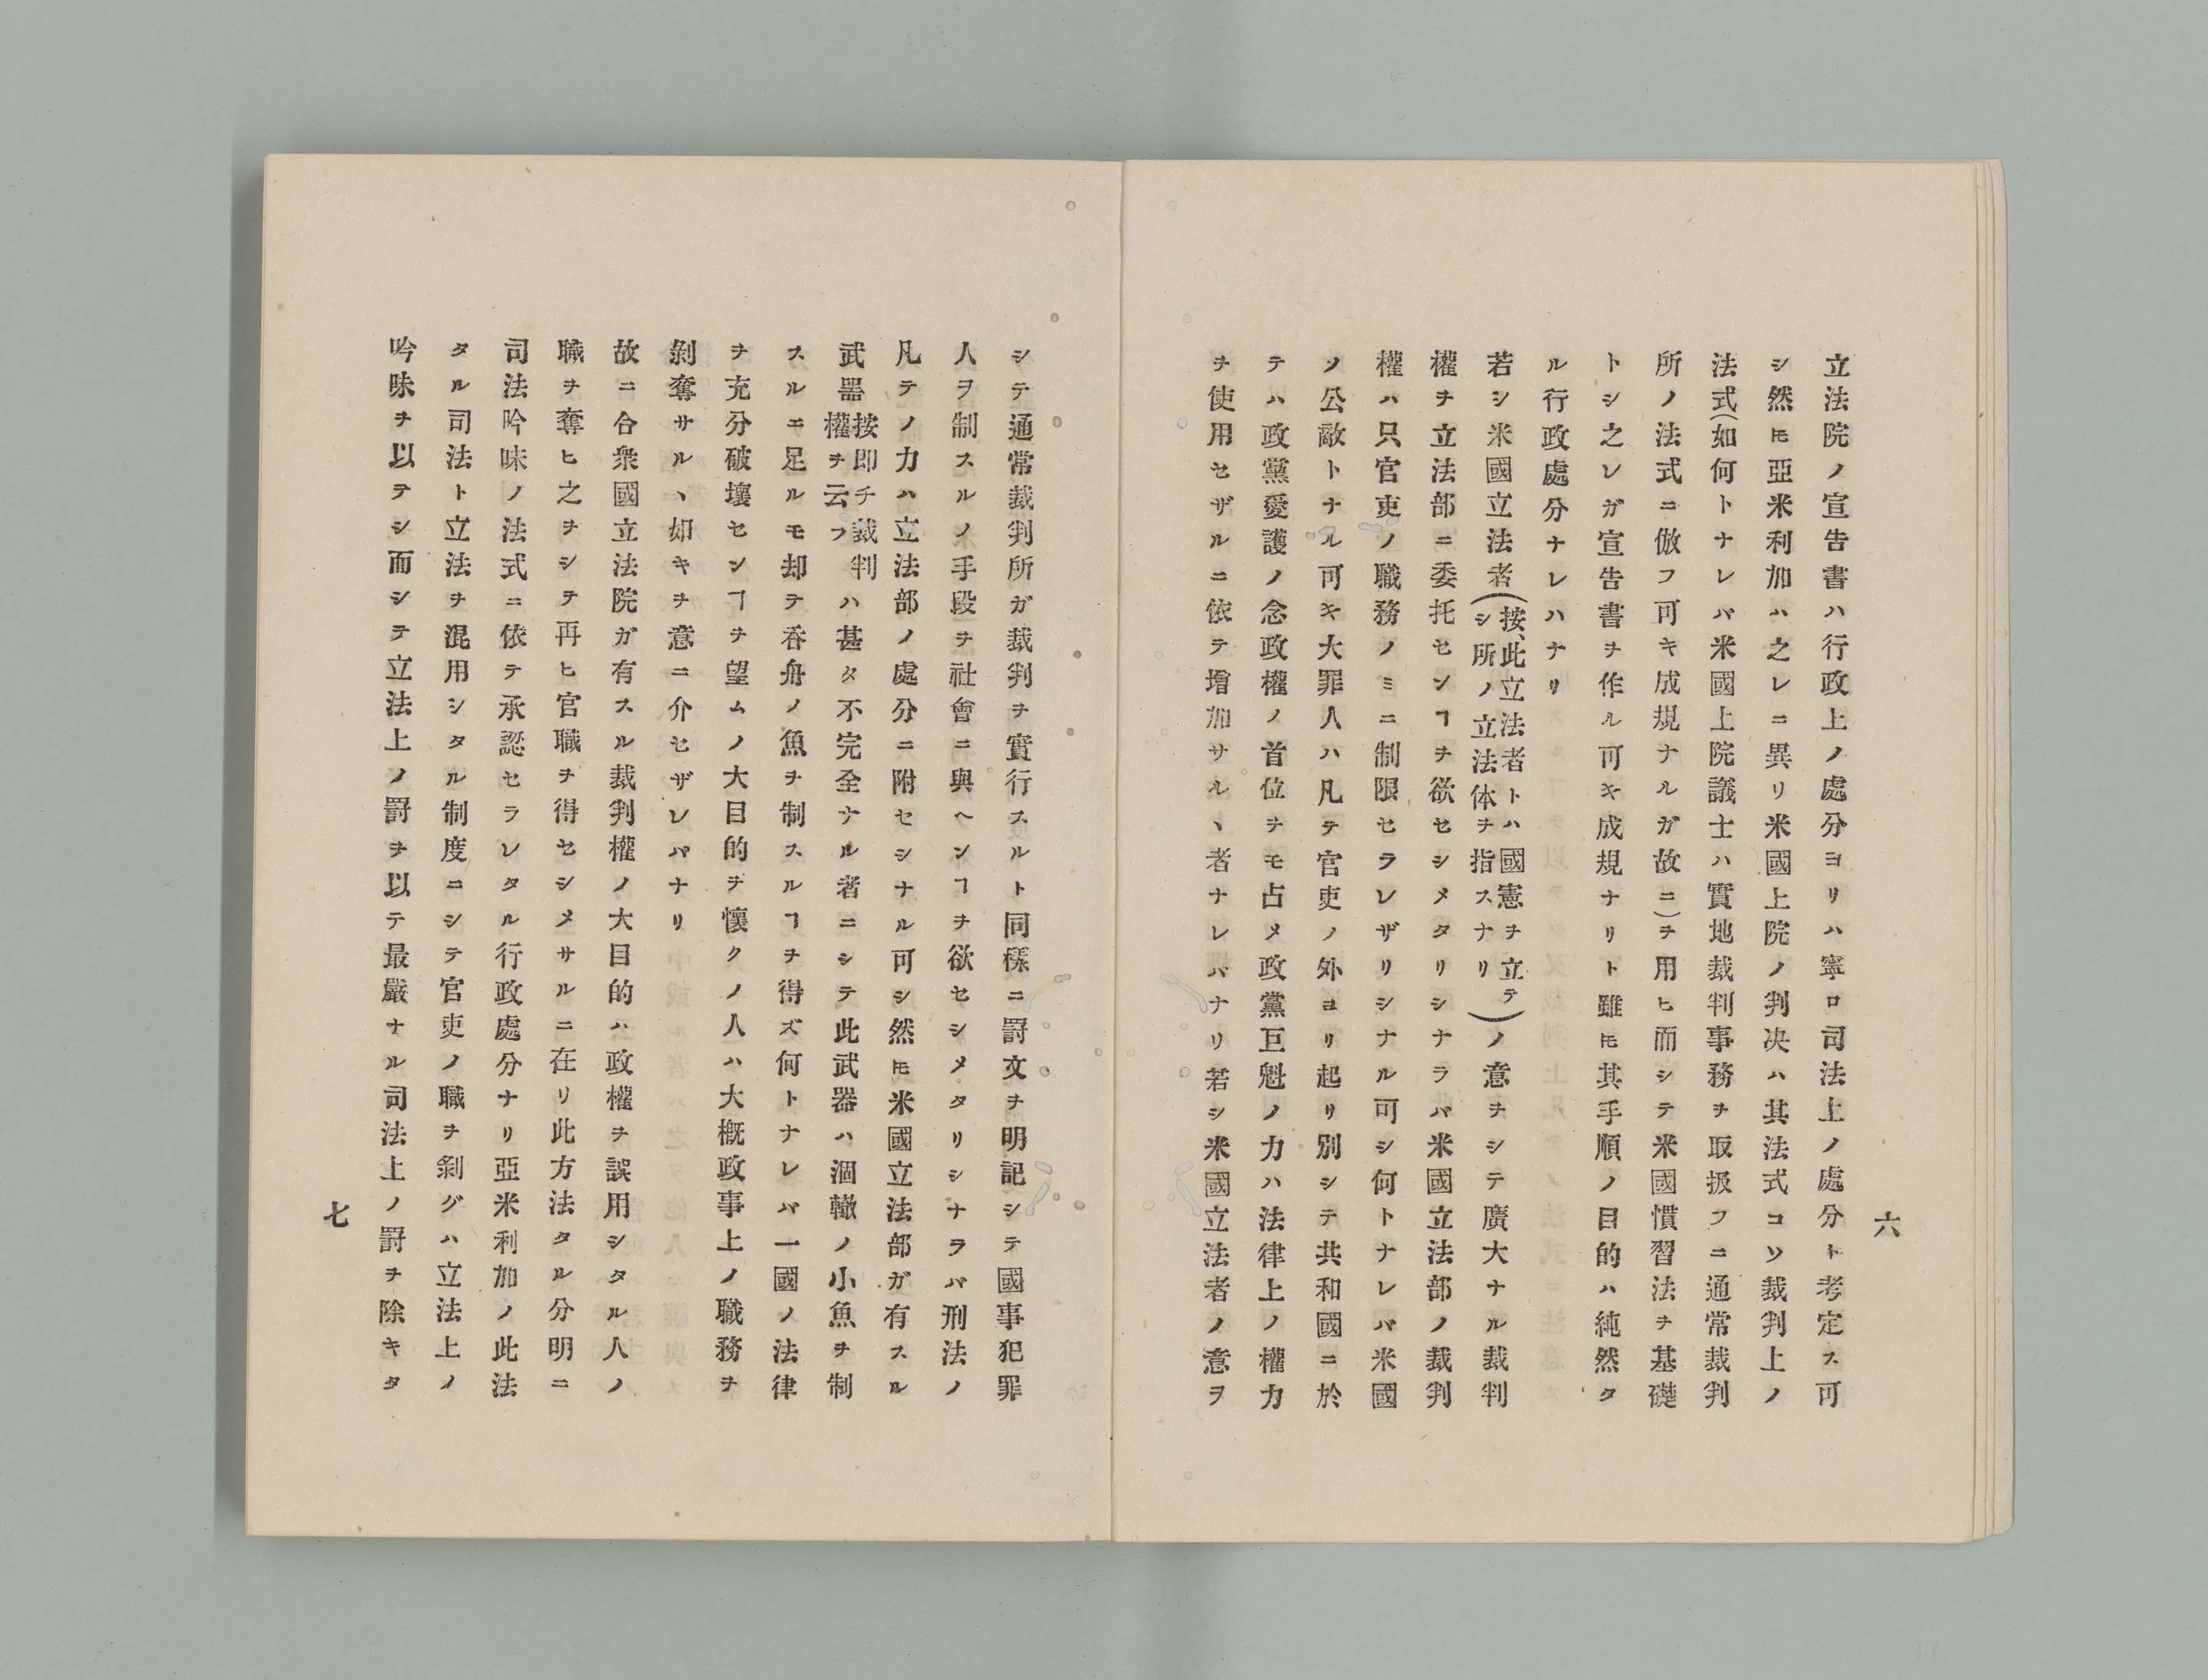 六
立法院ノ宣告書ハ行政上ノ處分ヨリハ寧ロ司法上ノ處分ト考定ス可
シ然ヒモ亞米利加ハ之レニ異リ米國上院ノ判决ハ其法式コソ裁判上ノ
法式(如何トナレバ米國上院議士ハ實地裁判事務ヲ取扱フニ通常裁判
所ノ法式ニ倣フ可キ成規ナルガ故ニ)ヲ用ヒ而シテ米國慣習法ヲ基礎
トシ之レガ宣告書ヲ作ル可キ成規ナリト雖ヒモ其手順ノ目的ハ純然タ
ル行政處分ナレハナリ
若シ米國立法者(按、此立法者トハ國憲ヲ立テシ所ノ立法体ヲ指スナリ)ノ意ヲシテ廣大ナル裁判
權ヲ立法部ニ委托センヿヲ欲セシメタリシナラバ米國立法部ノ裁判
權ハ只官吏ノ職務ノミニ制限セラレザリシナル可シ何トナレバ米國
ノ公敵トナル可キ大罪人ハ凡テ官吏ノ外ヨリ起リ別シテ共和國ニ於
テハ政黨愛護ノ念政權ノ首位ヲモ占メ政黨巨魁ノ力ハ法律上ノ權力
ヲ使用セザルニ依テ增加サルヽ者ナレバナリ若シ米國立法者ノ意ヲ
シテ通常裁判所ガ裁判ヲ實行スルト同樣ニ罰文ヲ明記シテ國事犯罪
人ヲ制スルノ手段ヲ社會ニ與ヘンヿヲ欲セシメタリシナラバ刑法ノ
凡テノ力ハ立法部ノ處分ニ附セシナル可シ然ヒモ米國立法部ガ有スル
武器按即チ裁判權ヲ云フハ甚タ不完全ナル者ニシテ此武器ハ涸轍ノ小魚ヲ制
スルニ足ルモ却テ呑舟ノ魚ヲ制スルヿヲ得ズ何トナレバ一國ノ法律
ヲ充分破壞センヿヲ望ムノ大目的ヲ懷クノ人ハ大概政事上ノ職務ヲ
剝奪サルヽ如キヲ意ニ介セザレバナリ
故ニ合衆國立法院ガ有スル裁判權ノ大目的ハ政權ヲ誤用シタル人ノ
職ヲ奪ヒ之ヲシテ再ヒ官職ヲ得セシメサルニ在リ此方法タル分明ニ
司法吟味ノ法式ニ依テ承認セラレタル行政處分ナリ亞米利加ノ此法
タル司法ト立法ヲ混用シタル制度ニシテ官吏ノ職ヲ剝グハ立法上ノ
吟味ヲ以テシ而シテ立法上ノ罰ヲ以テ最嚴ナル司法上ノ罰ヲ除キタ
七